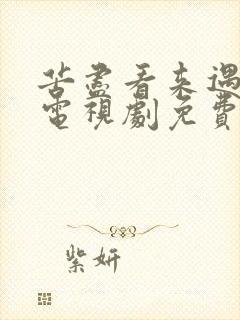 苦盡看来遇
電視劇免費
紫妍